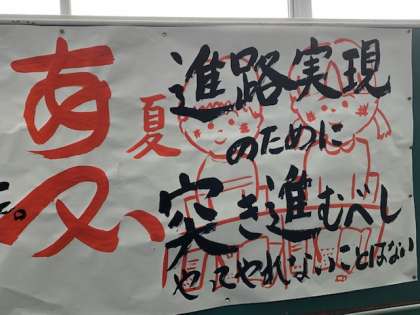 あ
夏
進路実現
のために
突き進むべし
やってやれないことはない